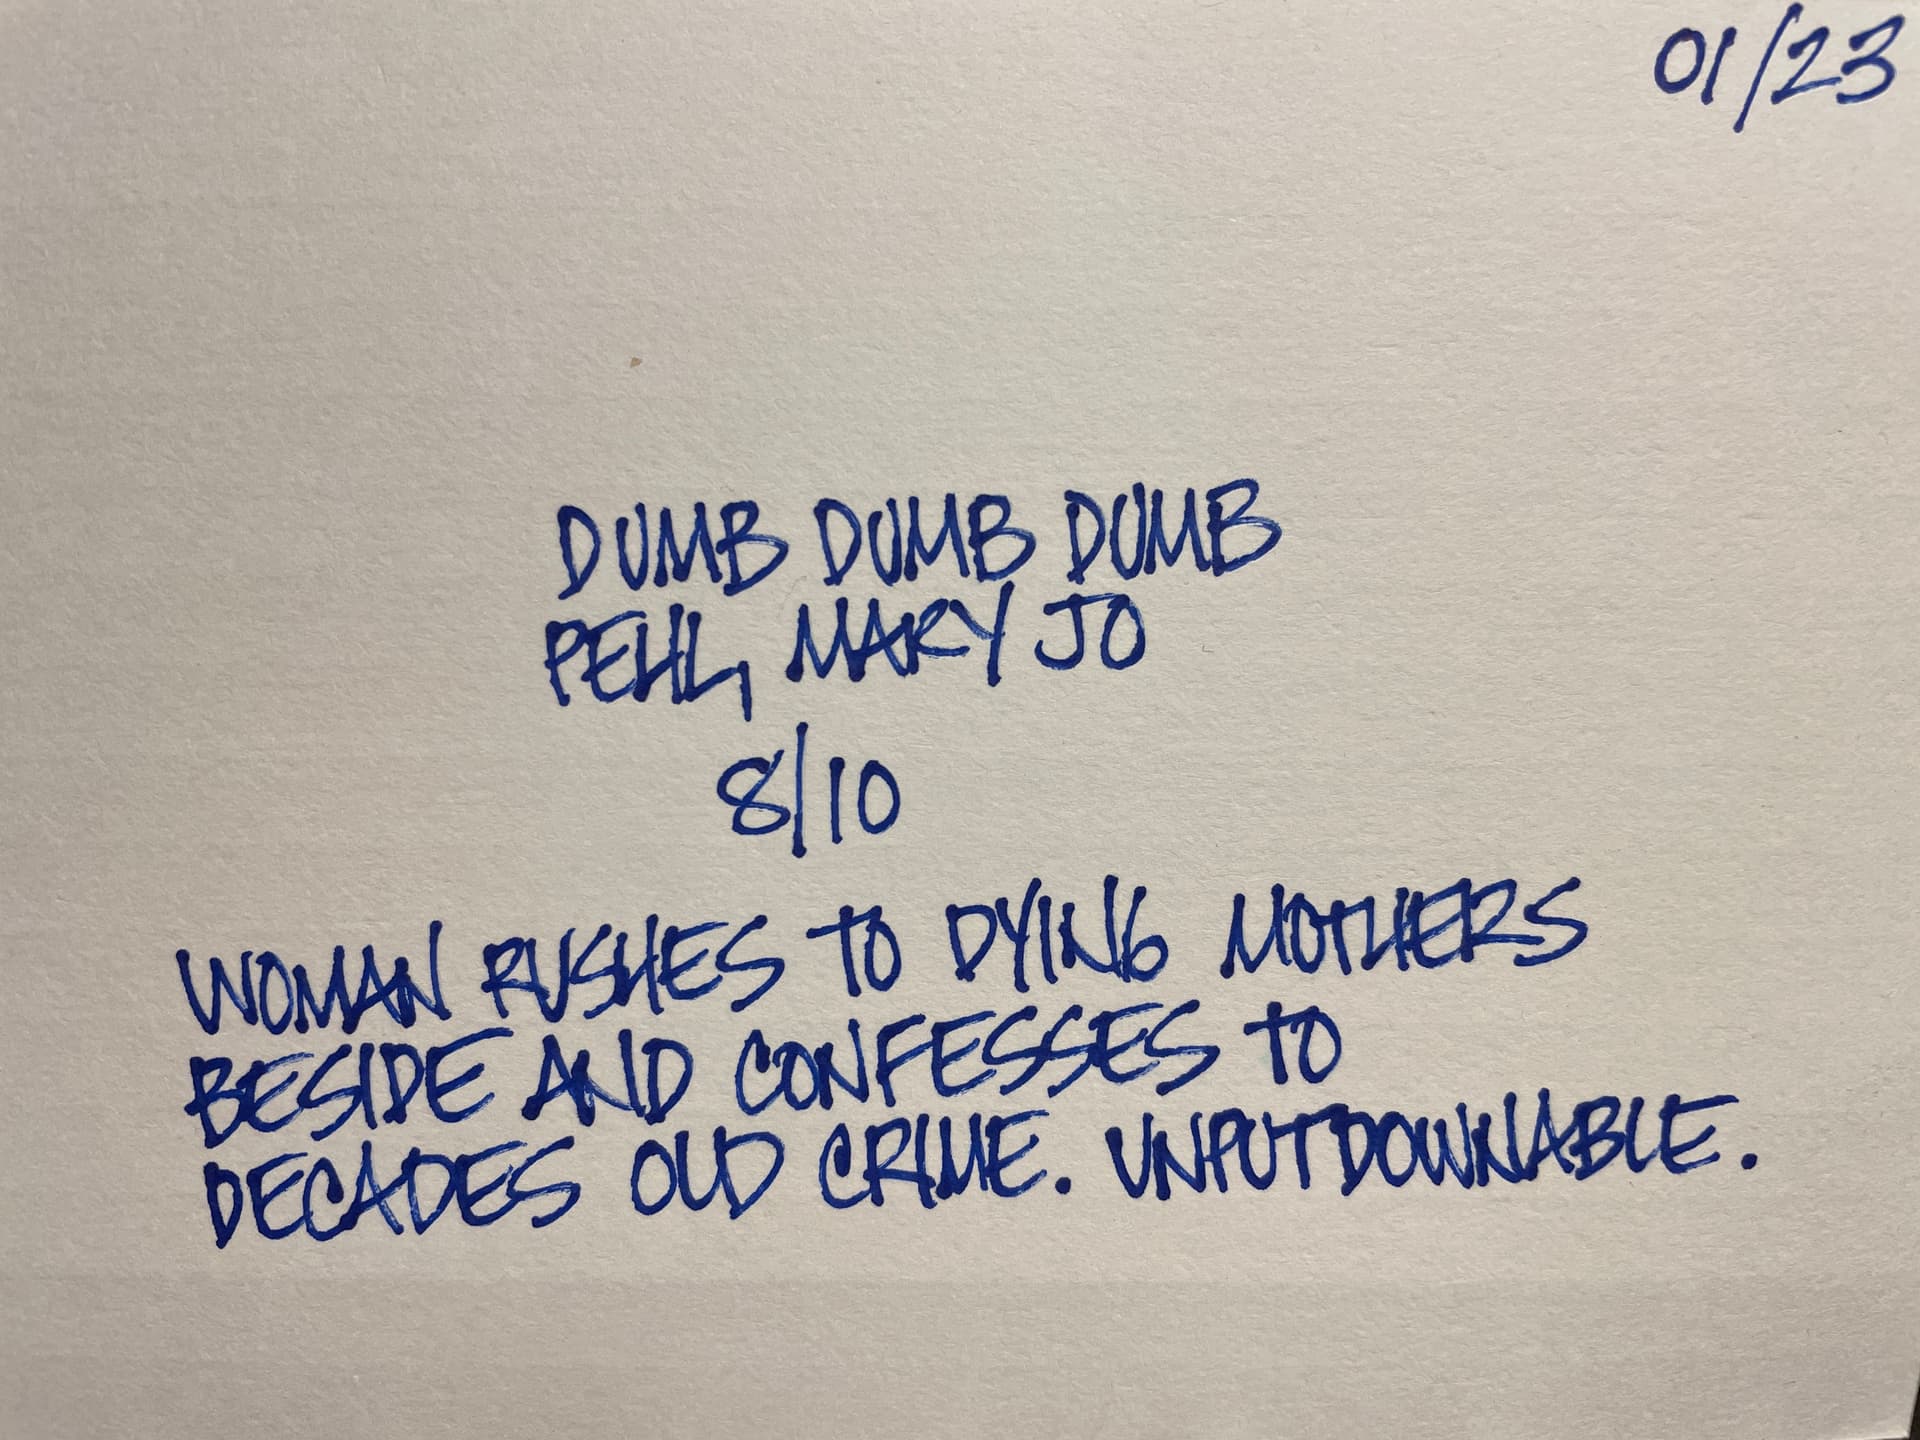 01/23
DUMB DUMB DUMB
PEHL, MARY JO
8/10
WOMAN RUSHES TO DYING MOTHERS
BESIDE AND CONFESSES TO
DECADES OLD CRIME. UNPUTDOWNABLE.